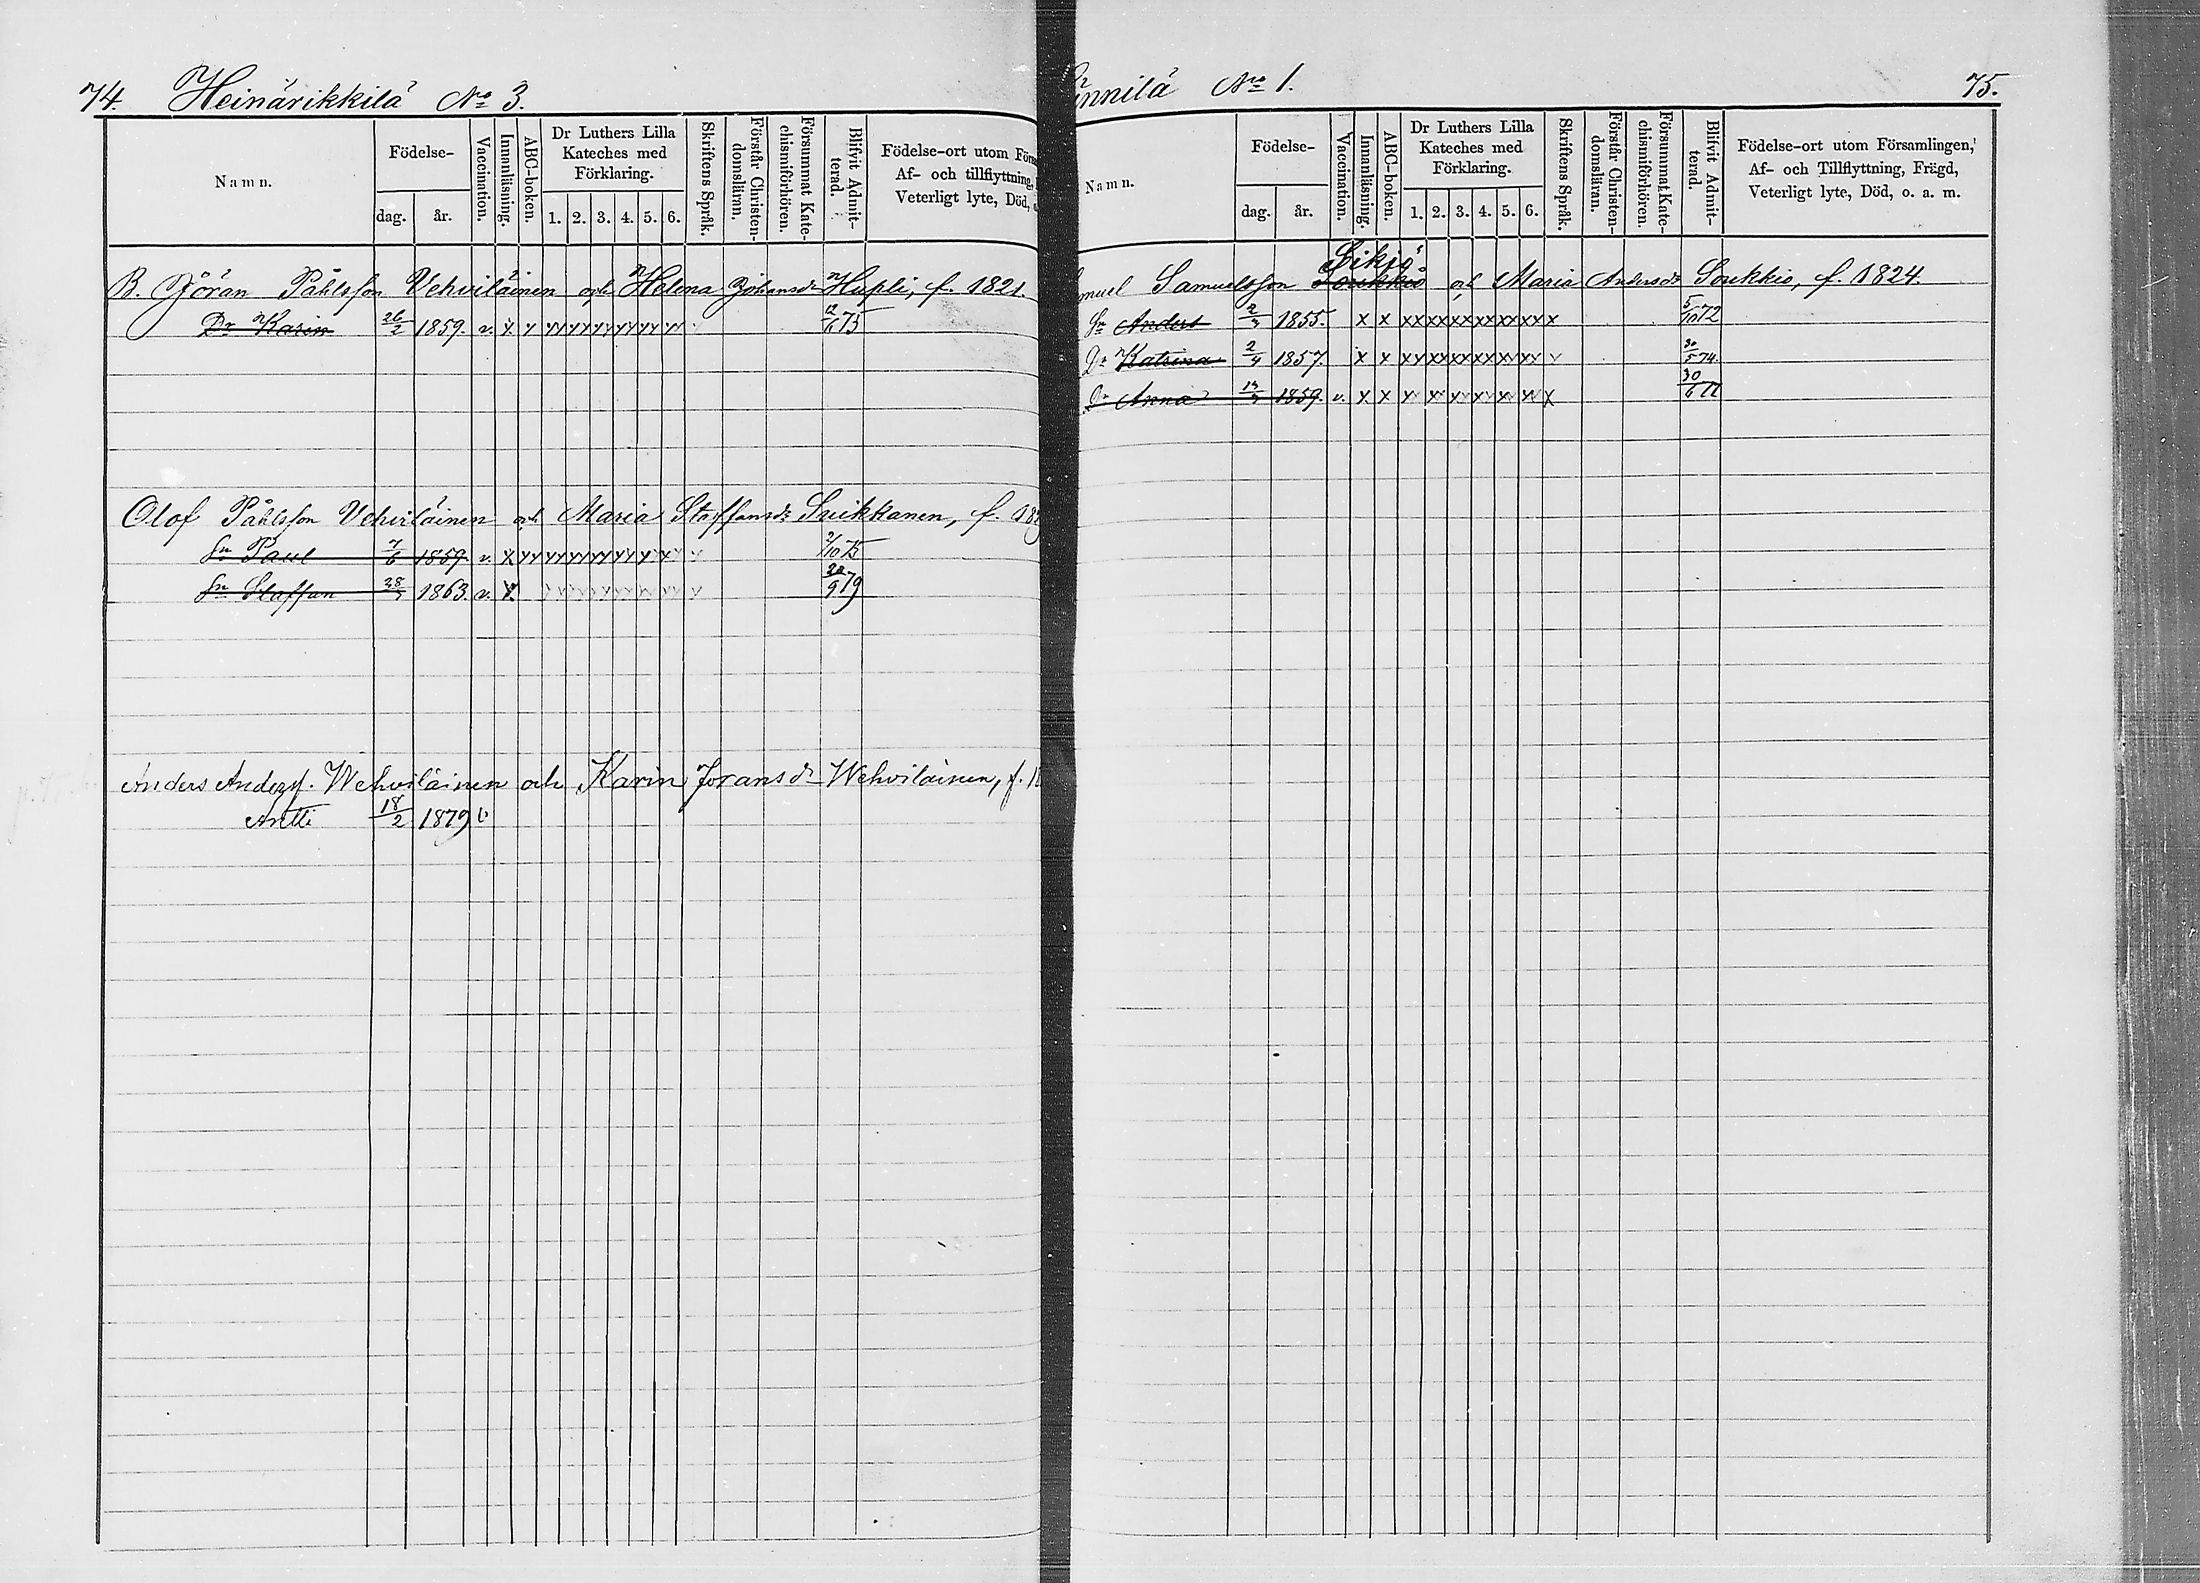 74. Heinärikkilä No 3.
Namn.
Födelse-
dag.
år.
Vaccination.
Innanläsning.
ABC-boken.
Dr Luthers Lilla
Kateches med
Förklaring.
1. 2. 3. 4. 5. 6.
Skriftens Språk.
Förstår Christen-
domsläran.
Försummat Kate-
chismiförhören.
Blifvit Admit-
terad.
Födelse-ort utom
Af- och tillflyttning,
Veterligt lyte, Död,
B. Jöran Påhlsson Vehviläinen och Helena Johansdr Hupli, f. 1821.
Dr Karin 26/2 1859. v. x x x x x x x x 12/6 75
Olof Påhlsson Vehviläinen och Maria Staffansdr Suikkanen, f.
Sn Paul 7/6 1859. v. x x x x x x x x 2/10 75
Sn Staffan 1863. v. x 9 79
Anders Andersf. Wehviläinen och Karin Joransdr Wehviläinen, f.
Antti 18/2 1879 v
No 1. 75.
Namn.
Födelse-
dag.
år.
Vaccination.
Innanläsning.
ABC-boken.
Dr Luthers Lilla
Kateches med
Förklaring.
1. 2. 3. 4. 5. 6.
Skriftens Språk.
Förstår Christen-
domsläran.
Försummat Kate-
chismiförhören.
Blifvit Admit-
terad.
Födelse-ort utom Församlingen,
Af- och Tillflyttning, Frägd,
Veterligt lyte, Död, o. a. m.
Sikiö
Samuelsson Soukkio och Maria Andersdr Soukkio, f. 1824.
Sn Anders 1855. x x x x x x x x x 5/10 72
Dr Katrina 1857. x x x x x x x x x 30/5 74.
Dr Anna 1859. v. x x x x x x x x x 30/6 77